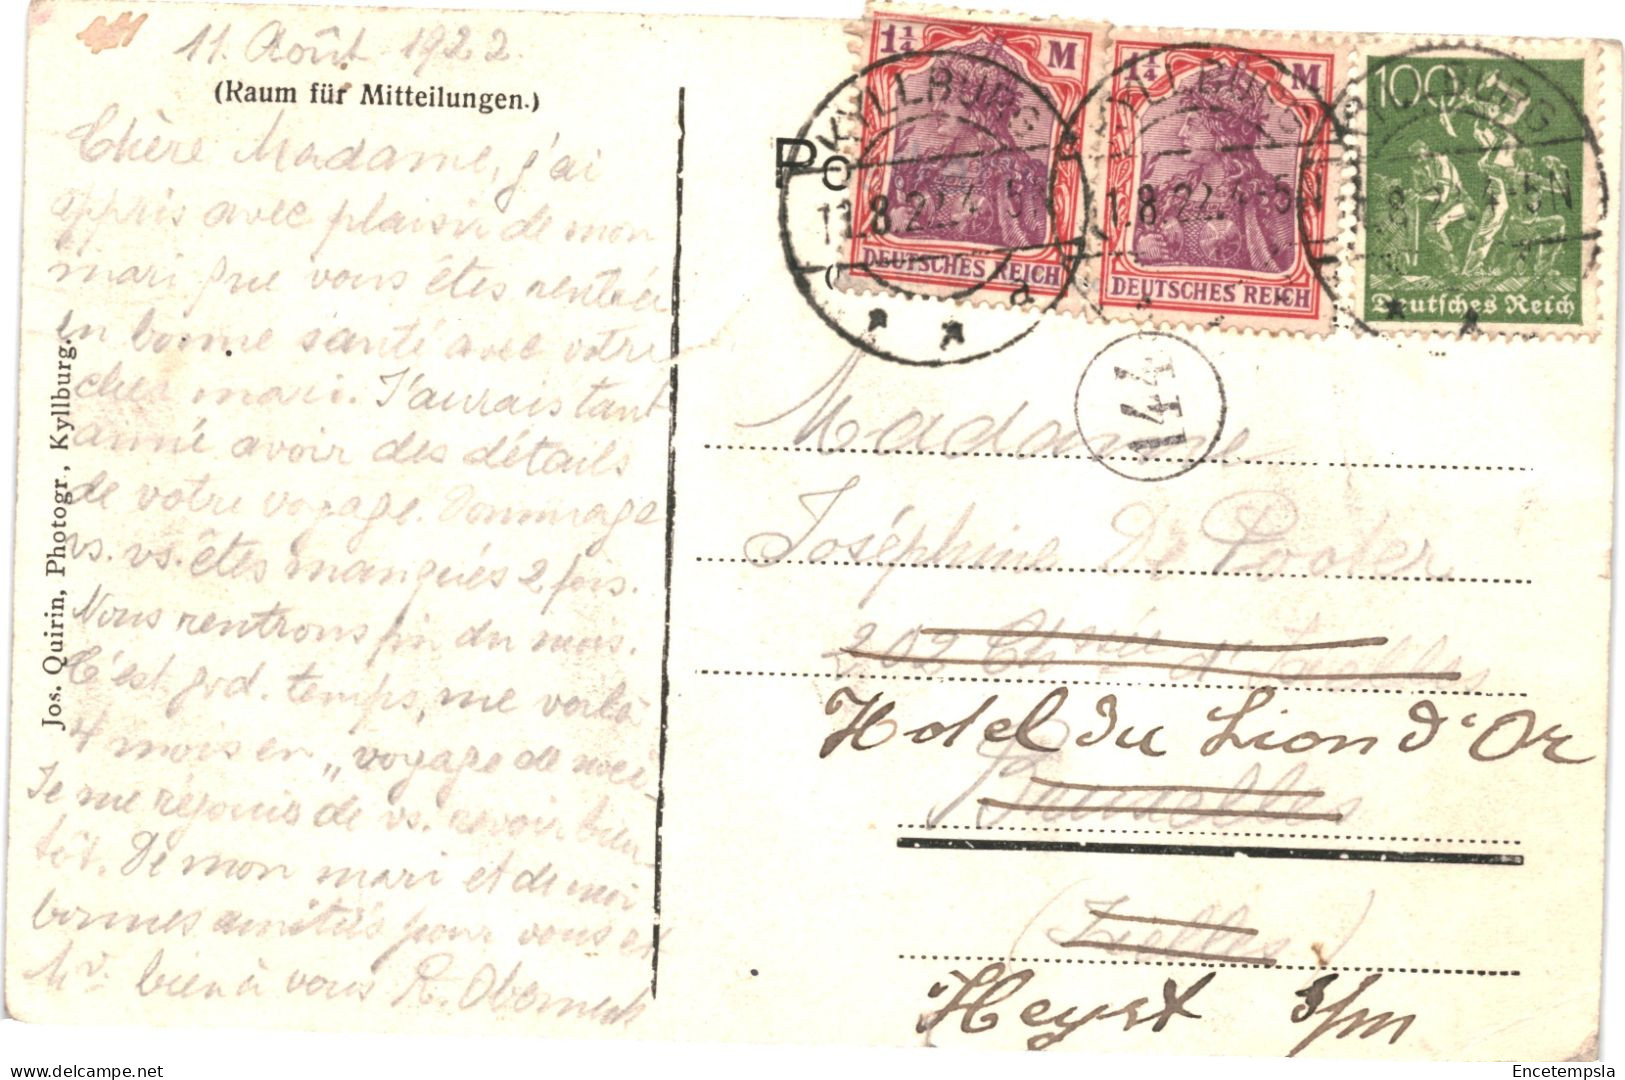 11. Août 1922
(Raum für Mitteilungen.)
Chère Madame, j'ai
appris avec plaisir de mon
mari que vous êtes rentrée
en bonne santé avec votre
cher mari. J'aurais tant
aimé avoir des détails
de votre voyage. Dommage
vs. vs. êtes manqués 2 fois.
Nous rentrons fin du mois.
C'est grd. temps, me voilà
4 mois en „voyage de
Je me réjouis de vs. revoir bien-
tôt. De mon mari et de moi
bonnes amitiés pour vous et
Mr. bien à vous
Jos. Quirin, Photogr., Kyllburg.
Po
1¼ M
DEUTSCHES REICH
1¼ M
DEUTSCHES REICH
100
Deutsches Reich
KYLLBURG
11.8.22.4-5N
a
KYLLBURG
11.8.22.4-5N
KYLLBURG
11.8.22.4-5N
144
Madame
Joséphine De Pooter
202 Chsée d'Ixelles
Hotel Du Lion d'Or
Bruxelles
(Ixelles)
Heyst s/m
Encetempsla